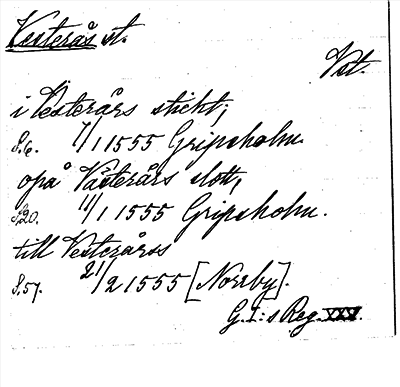 Vesterås st.
Vst.
i Vesterårs stickt,
S.6. 7/1 1555 Gripsholm.
opå Västerårs slott,
S.20. 11/1 1555 Gripsholm.
till Vesterårss
S.57. 21/2 1555 [Norrby].
G.I:s Reg. XXV.